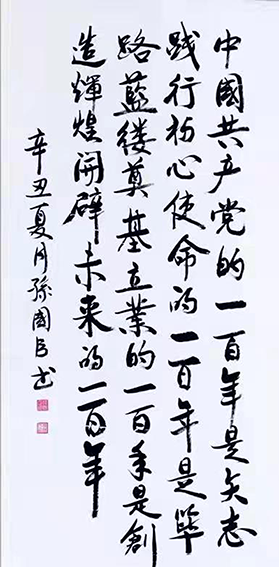 中國共产党的一百年是矢志
践行初心使命的一百年是筚
路蓝缕奠基立業的一百年是創
造輝煌開辟未来的一百年
辛丑夏月孫國书